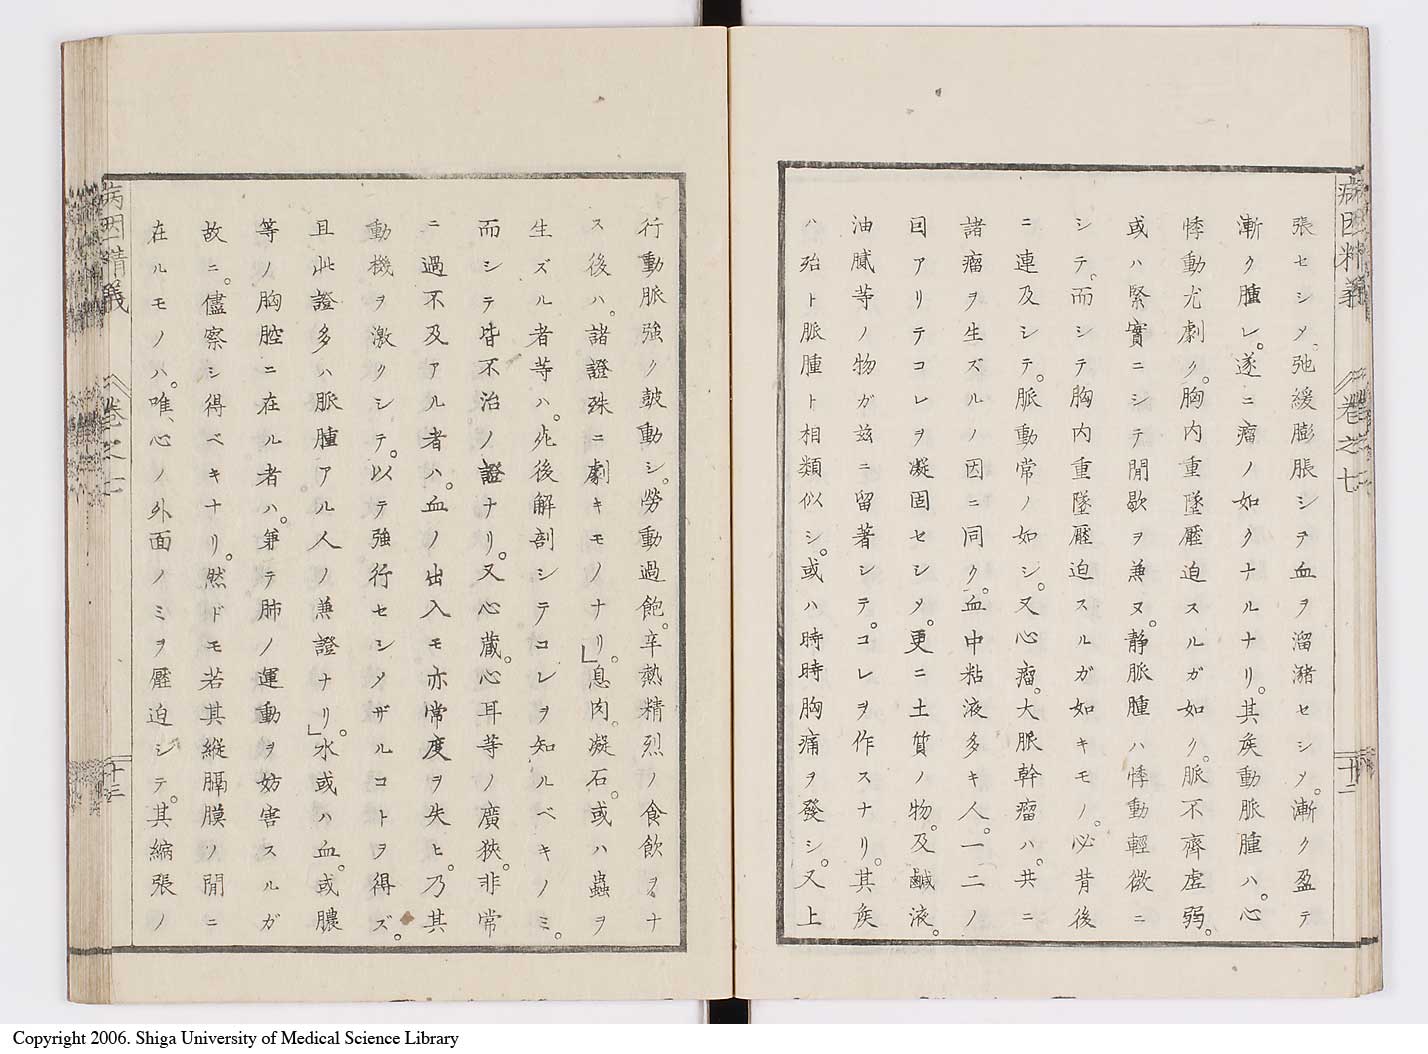 病因精義
卷之七
十二
張セシメ。弛緩膨脹シテ血ヲ溜瀦セシメ。漸ク盈テ
漸ク腫レ。遂ニ瘤ノ如クナルナリ。其矦動脈腫ハ。心
悸動尤劇ク。胸内重墜壓迫スルガ如ク。脈不齊虚弱。
或ハ緊實ニシテ間歇ヲ兼ヌ。静脈腫ハ悸動輕微ニ
シテ。而シテ胸内重墜壓迫スルガ如キモノ。必昔後
ニ連及シテ。脈動常ノ如シ。又心瘤。大脈幹瘤ハ。共ニ
諸瘤ヲ生ズルノ因ニ同ク。血中粘液多キ人。一二ノ
因アリテコレヲ凝固セシメ。更ニ土質ノ物。及鹹液。
油膩等ノ物ガ茲ニ留著シテ。コレヲ作スナリ。其矦
ハ殆ト脈腫ト相類似シ。或ハ時時胸痛ヲ發シ。又上
行動脈強ク皷動シ。勞動過飽。辛熱精烈ノ食飲ヲナ
ス後ハ。諸證殊ニ劇キモノナリ」。息肉。凝石。或ハ蟲ヲ
生ズル者等ハ。死後解剖シテコレヲ知ルベキノミ。
而シテ皆不治ノ證ナリ。又心蔵。心耳等ノ廣狹。非常
ニ過不及アル者ハ。血ノ出入モ亦常度ヲ失ヒ。乃其
動機ヲ激クシテ。以テ強行セシメザルコトヲ得ズ。
且此證多ハ脈腫アル人ノ兼證ナリ」。水或ハ血。或膿
等ノ胸腔ニ在ル者ハ。第テ肺ノ運動ヲ妨害スルガ
故ニ。儘察シ得ベキナリ。然ドモ若其縱膈膜ノ間ニ
在ルモノハ。唯、心ノ外面ノミヲ壓迫シテ。其縮張ノ
病因精義
卷之七
十三
Copyright 2006. Shiga University of Medical Science Library